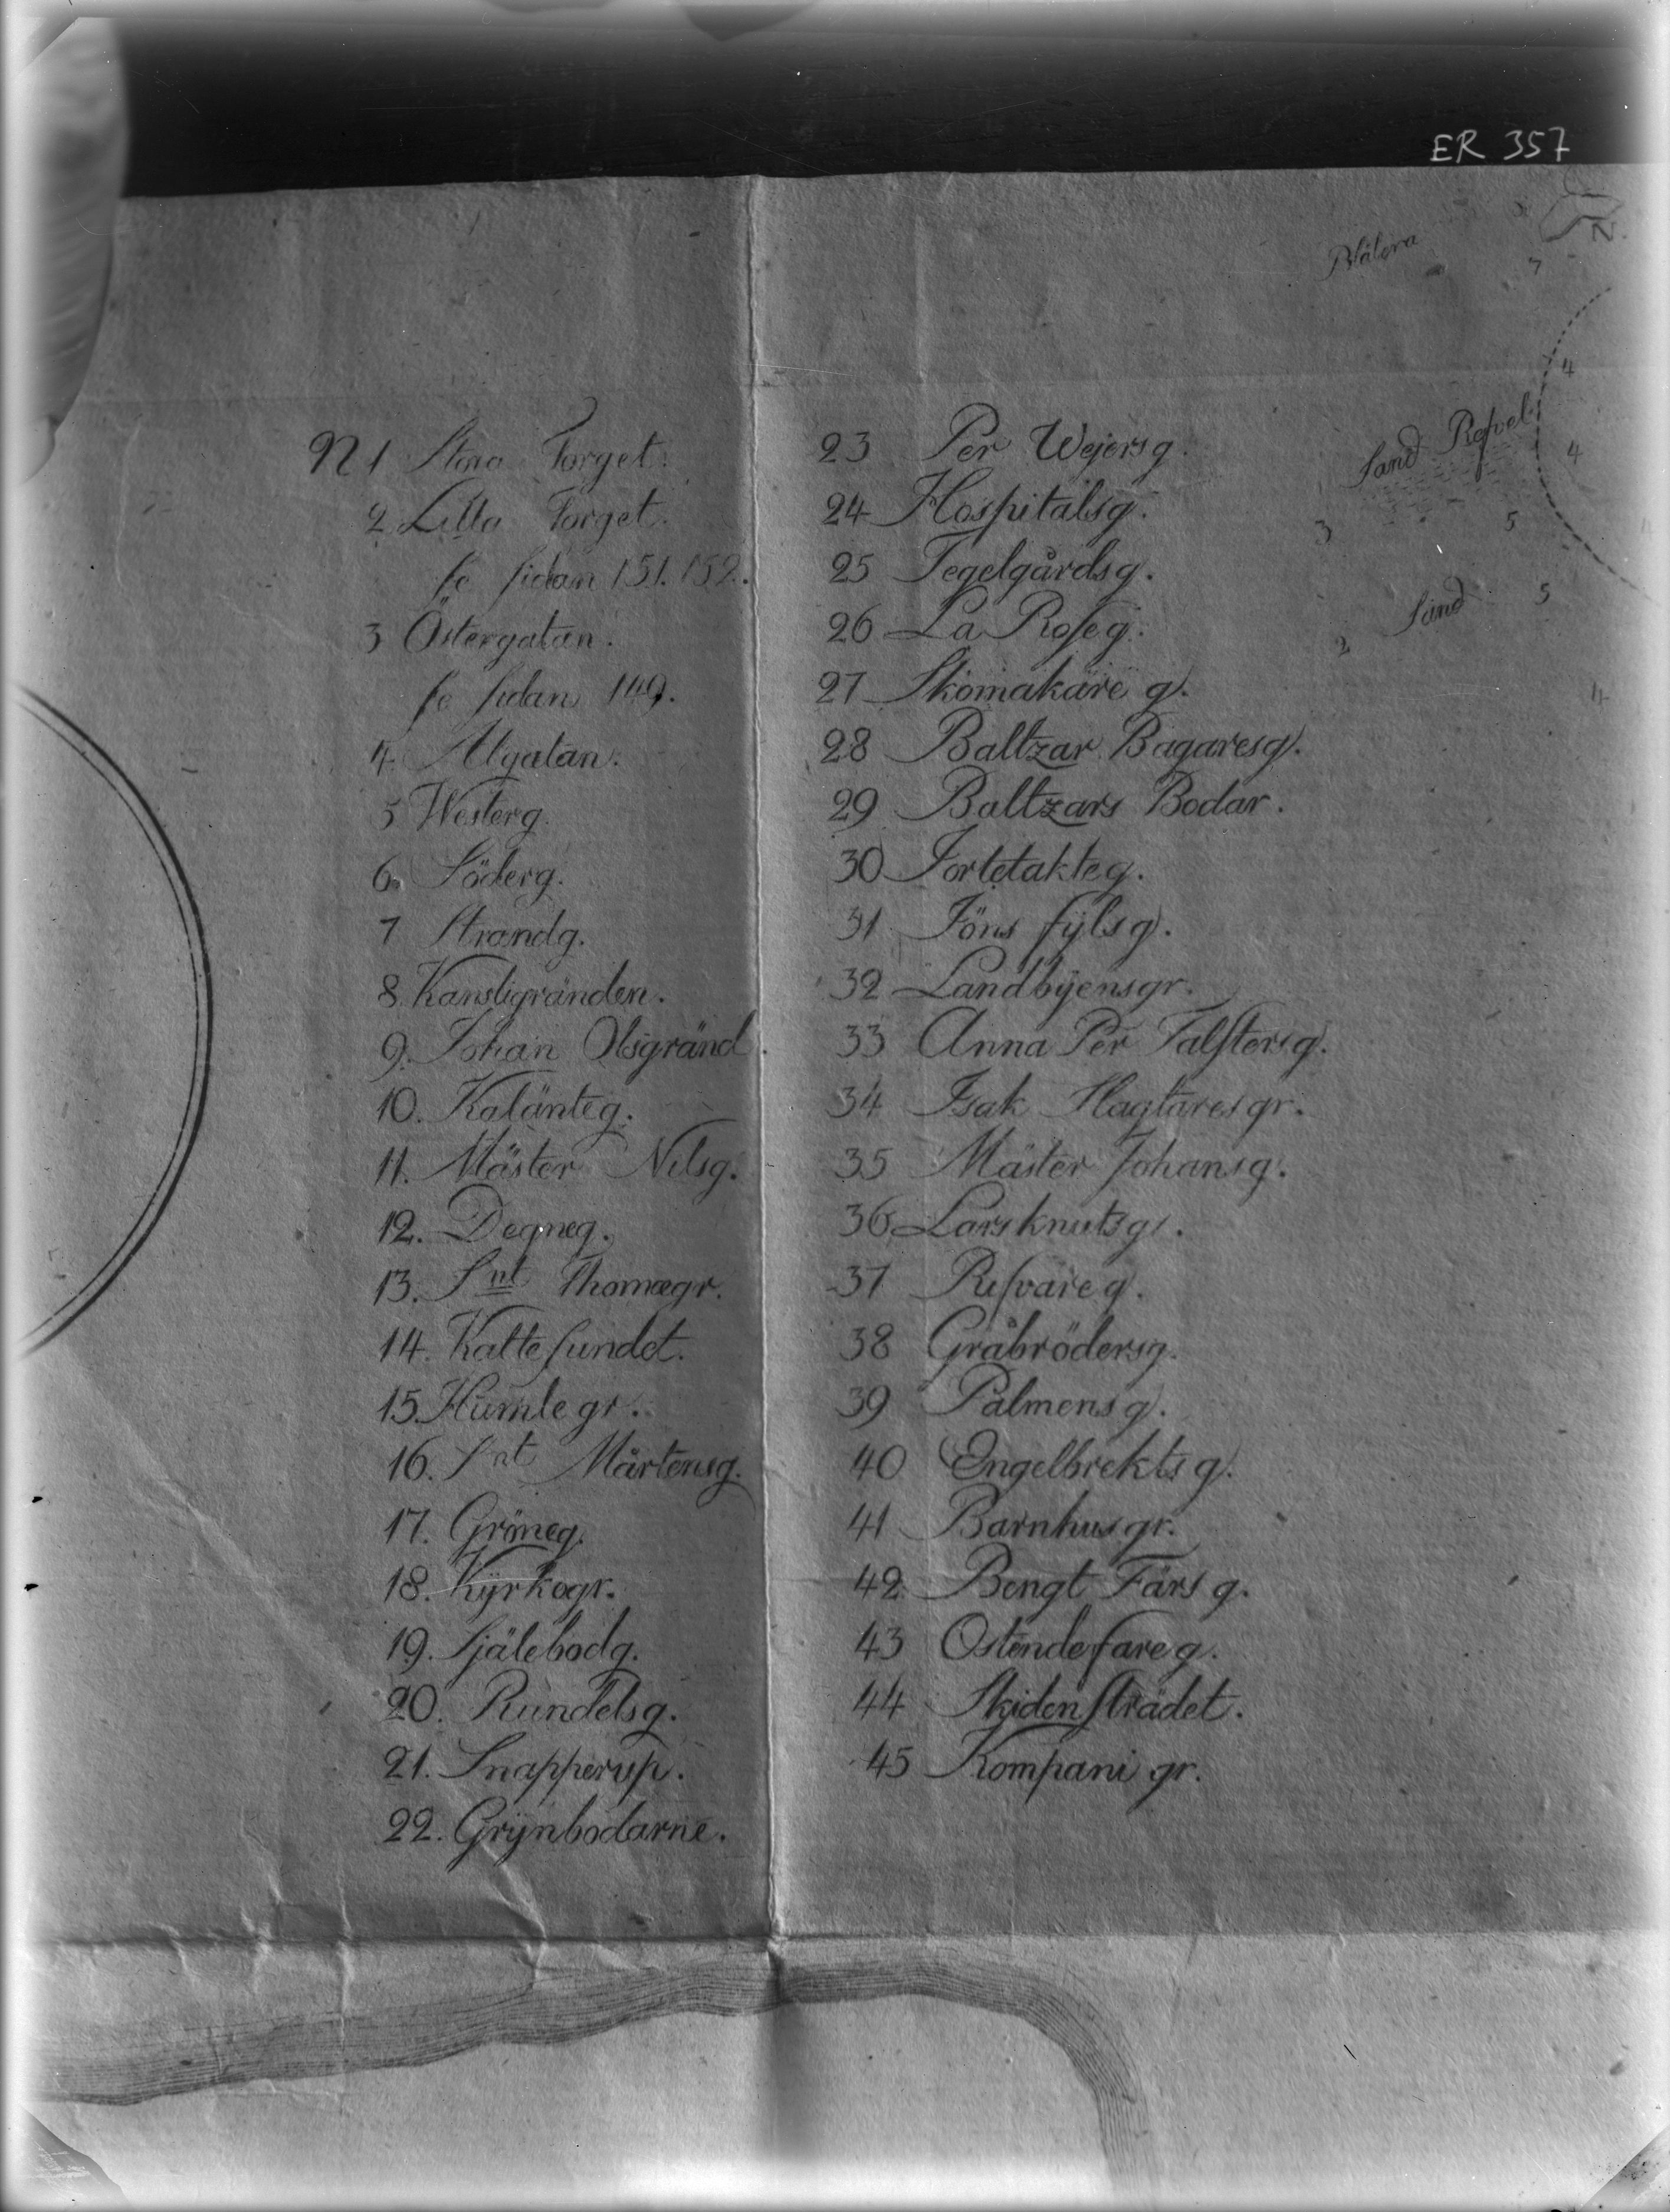 ER 357
N.
Blålera
7
4
Sand Refvel
4
3
5
Sand
5
2
4
N 1 Stora Torget.
2 Lilla Torget.
se sidan 151. 152.
3 Östergatan.
se sidan 149.
4. Algatan.
5 Westerg.
6. Söderg.
7 Strandg.
8. Kansligränden.
9. Johan Olsgränd.
10. Kalänteg.
11. Mäster Nilsg.
12. Degneg.
13. Snt Thomægr.
14. Kattesundet.
15. Humlegr.
16. Snt Mårtensg.
17. Gröneg.
18. Kÿrkogr.
19. Själebodg.
20. Rundelsg.
21. Snapperup.
22. Grÿnbodarne.
23 Per Wejersg.
24 Hospitalsg.
25 Tegelgårdsg.
26 La Roseg.
27 Skomakare g.
28 Baltzar Bagaresg.
29 Baltzars Bodar.
30 Jortetakteg.
31 Jöns fÿlsg.
32 Landbÿensgr.
33 Anna Per Talstersg.
34 Isak Slagtaresgr.
35 Mäster Johansg.
36 Lars knutsg.
37 Rusvareg.
38 Gråbrödersg.
39 Palmensg.
40 Engelbrektsg.
41 Barnhusgr.
42 Bengt Färs g.
43 Ostendefareg.
44 Skidensträdet.
45 Kompani gr.